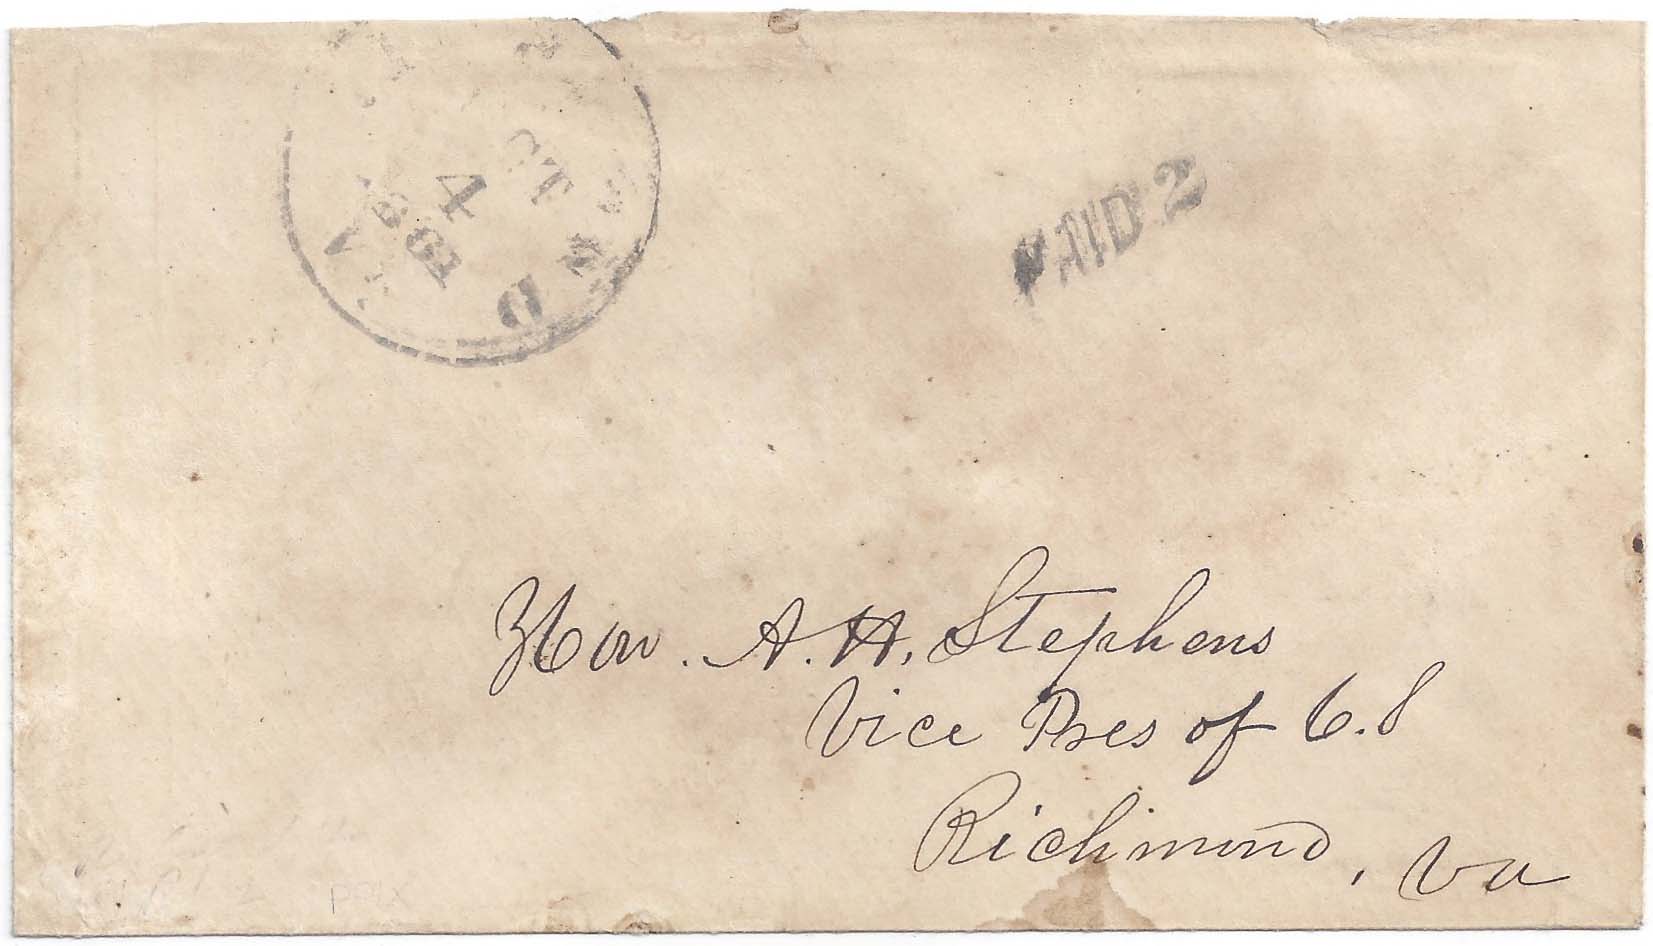 OCT
4
1861
VA
PAID 2
Hon. A. H. Stephens
Vice Pres of C.S
Richmond, Va